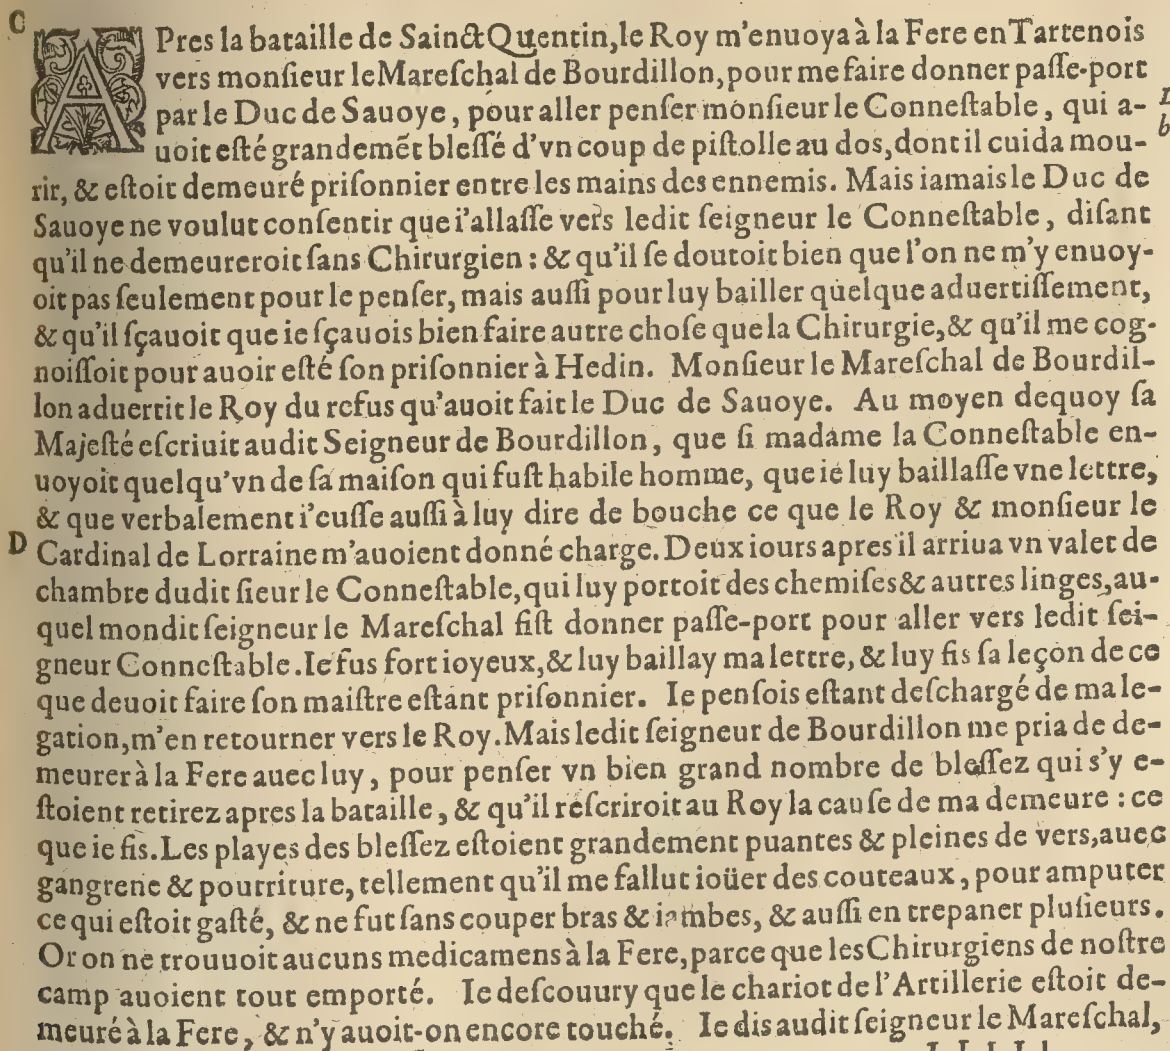 C
APres la bataille de Sainct Quentin, le Roy m'enuoya à la Fere en Tartenois
vers monſieur le Mareſchal de Bourdillon, pour me faire donner paſſe-port
par le Duc de Sauoye, pour aller penſer monſieur le Conneſtable, qui a-
uoit eſté grandemẽt bleſſé d'vn coup de piſtolle au dos, dont il cuida mou-
rir, & eſtoit demeuré priſonnier entre les mains des ennemis. Mais iamais le Duc de
Sauoye ne voulut conſentir que i'allaſſe vers ledit ſeigneur le Conneſtable, diſant
qu'il ne demeureroit ſans Chirurgien : & qu'il ſe doutoit bien que l'on ne m'y enuoy-
oit pas ſeulement pour le penſer, mais auſſi pour luy bailler quelque aduertiſſement,
& qu'il ſçauoit que ie ſçauois bien faire autre choſe que la Chirurgie, & qu'il me cog-
noiſſoit pour auoir eſté ſon priſonnier à Hedin. Monſieur le Mareſchal de Bourdil-
lon aduertit le Roy du refus qu'auoit fait le Duc de Sauoye. Au moyen dequoy ſa
Majeſté eſcriuit audit Seigneur de Bourdillon, que ſi madame la Conneſtable en-
uoyoit quelqu'vn de ſa maiſon qui fuſt habile homme, que ie luy baillaſſe vne lettre,
& que verbalement i'euſſe auſſi à luy dire de bouche ce que le Roy & monſieur le
D
Cardinal de Lorraine m'auoient donné charge. Deux iours apres il arriua vn valet de
chambre dudit ſieur le Conneſtable, qui luy portoit des chemiſes & autres linges, au-
quel mondit ſeigneur le Mareſchal fiſt donner paſſe-port pour aller vers ledit ſei-
gneur Conneſtable. Ie fus fort ioyeux, & luy baillay ma lettre, & luy fis ſa leçon de ce
que deuoit faire ſon maiſtre eſtant priſonnier. Ie penſois eſtant deſchargé de ma le-
gation, m'en retourner vers le Roy. Mais ledit ſeigneur de Bourdillon me pria de de-
meurer à la Fere auec luy, pour penſer vn bien grand nombre de bleſſez qui s'y e-
ſtoient retirez apres la bataille, & qu'il reſcriroit au Roy la cauſe de ma demeure : ce
que ie fis. Les playes des bleſſez eſtoient grandement puantes & pleines de vers, auec
gangrene & pourriture, tellement qu'il me fallut ioüer des couteaux, pour amputer
ce qui eſtoit gaſté, & ne fut ſans couper bras & iambes, & auſſi en trepaner pluſieurs.
Or on ne trouuoit aucuns medicamens à la Fere, parce que les Chirurgiens de noſtre
camp auoient tout emporté. Ie deſcouury que le chariot de l'Artillerie eſtoit de-
meuré à la Fere, & n'y auoit-on encore touché. Ie dis audit ſeigneur le Mareſchal,